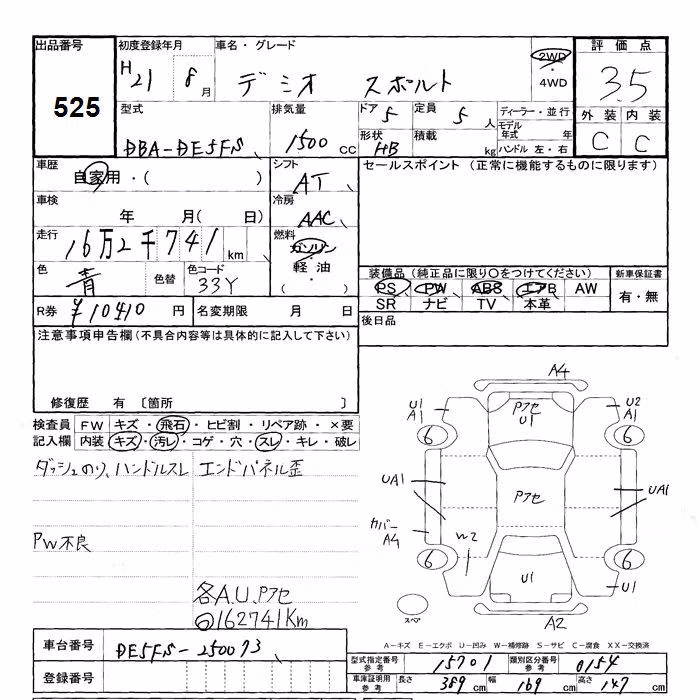 出品番号
525
初度登録年月
H21 8 月
車名・グレード
デミオ スポルト
2WD
・
4WD
評価点
3.5
外装 内装
C C
型式
DBA-DE5FS
排気量
1500 cc
ドア 5
定員 5 人
形状 HB
積載 kg
ディーラー・並行
モデル年式 年
ハンドル 左・右
車歴
自家用・( )
シフト
AT
セールスポイント (正常に機能するものに限ります)
車検
年 月( 日)
冷房
AAC
走行
16万2千741 km
燃料
ガソリン
軽油
・
( )
色
青
色替
色コード
33Y
装備品(純正品に限り○をつけてください)
PS PW ABS エアB AW
SR ナビ TV 本革
新車保証書
有・無
R券 ¥10410 円
名変期限 月 日
後日品
注意事項申告欄(不具合内容等は具体的に記入して下さい)
修復歴 有 〔箇所 〕
検査員記入欄
FW キズ・飛石・ヒビ割・リペア跡・×要
内装 キズ・汚レ・コゲ・穴・スレ・キレ・破レ
ダッシュのり、ハンドルスレ
エンドパネル歪
PW不良
各A.U.Pアセ
162741Km
A4
U1
A1
Pアセ
U1
U2
A1
6
6
UA1
Pアセ
UA1
カバー
A4
W2
6
6
U1
U1
スペア
A2
A-キズ E-エクボ U-凹み W-補修跡 S-サビ C-腐食 XX-交換済
車台番号
DE5FS-250073
登録番号
型式指定番号 参考
15701
類別区分番号 参考
0154
車庫証明用 参考
長さ 389 cm
幅 169 cm
高さ 147 cm